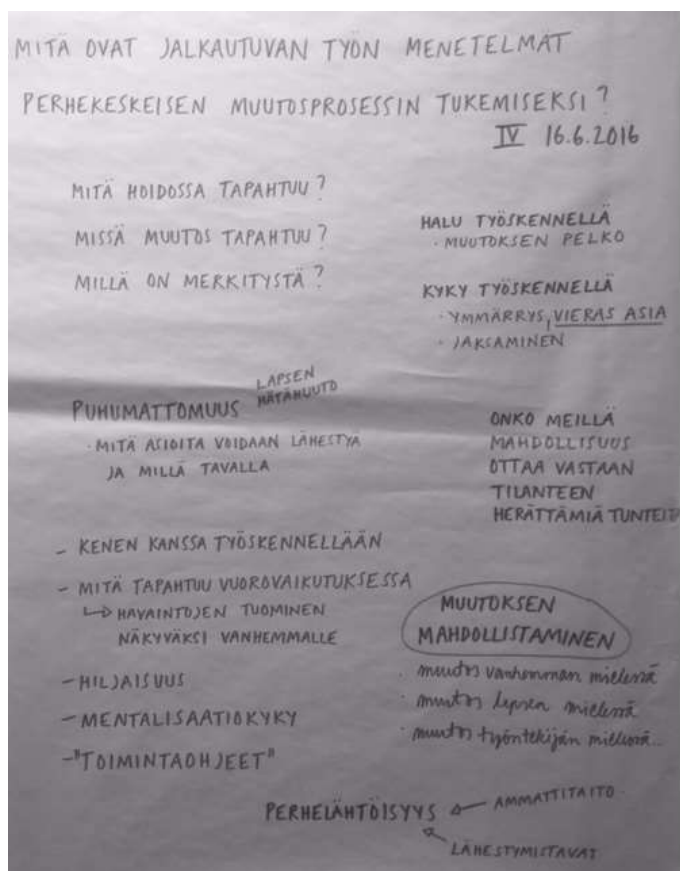 MITÄ OVAT JALKAUTUVAN TYÖN MENETELMÄT
PERHEKESKEISEN MUUTOSPROSESSIN TUKEMISEKSI?
IV 16.6.2016
MITÄ HOIDOSSA TAPAHTUU?
MISSÄ MUUTOS TAPAHTUU?
MILLÄ ON MERKITYSTÄ?
HALU TYÖSKENNELLÄ
· MUUTOKSEN PELKO
KYKY TYÖSKENNELLÄ
· YMMÄRRYS, VIERAS ASIA
· JAKSAMINEN
LAPSEN
HÄTÄHUUTO
PUHUMATTOMUUS
· MITÄ ASIOITA VOIDAAN LÄHESTYÄ
JA MILLÄ TAVALLA
ONKO MEILLÄ
MAHDOLLISUUS
OTTAA VASTAAN
TILANTEEN
HERÄTTÄMIÄ TUNTEITA
- KENEN KANSSA TYÖSKENNELLÄÄN
- MITÄ TAPAHTUU VUOROVAIKUTUKSESSA
↳ HAVAINTOJEN TUOMINEN
NÄKYVÄKSI VANHEMMALLE
- HILJAISUUS
- MENTALISAATIOKYKY
- "TOIMINTAOHJEET"
MUUTOKSEN
MAHDOLLISTAMINEN
· muutos vanhemman mielessä
· muutos lapsen mielessä
· muutos työntekijän mielessä..
PERHELÄHTÖISYYS ← AMMATTITAITO
LÄHESTYMISTAVAT